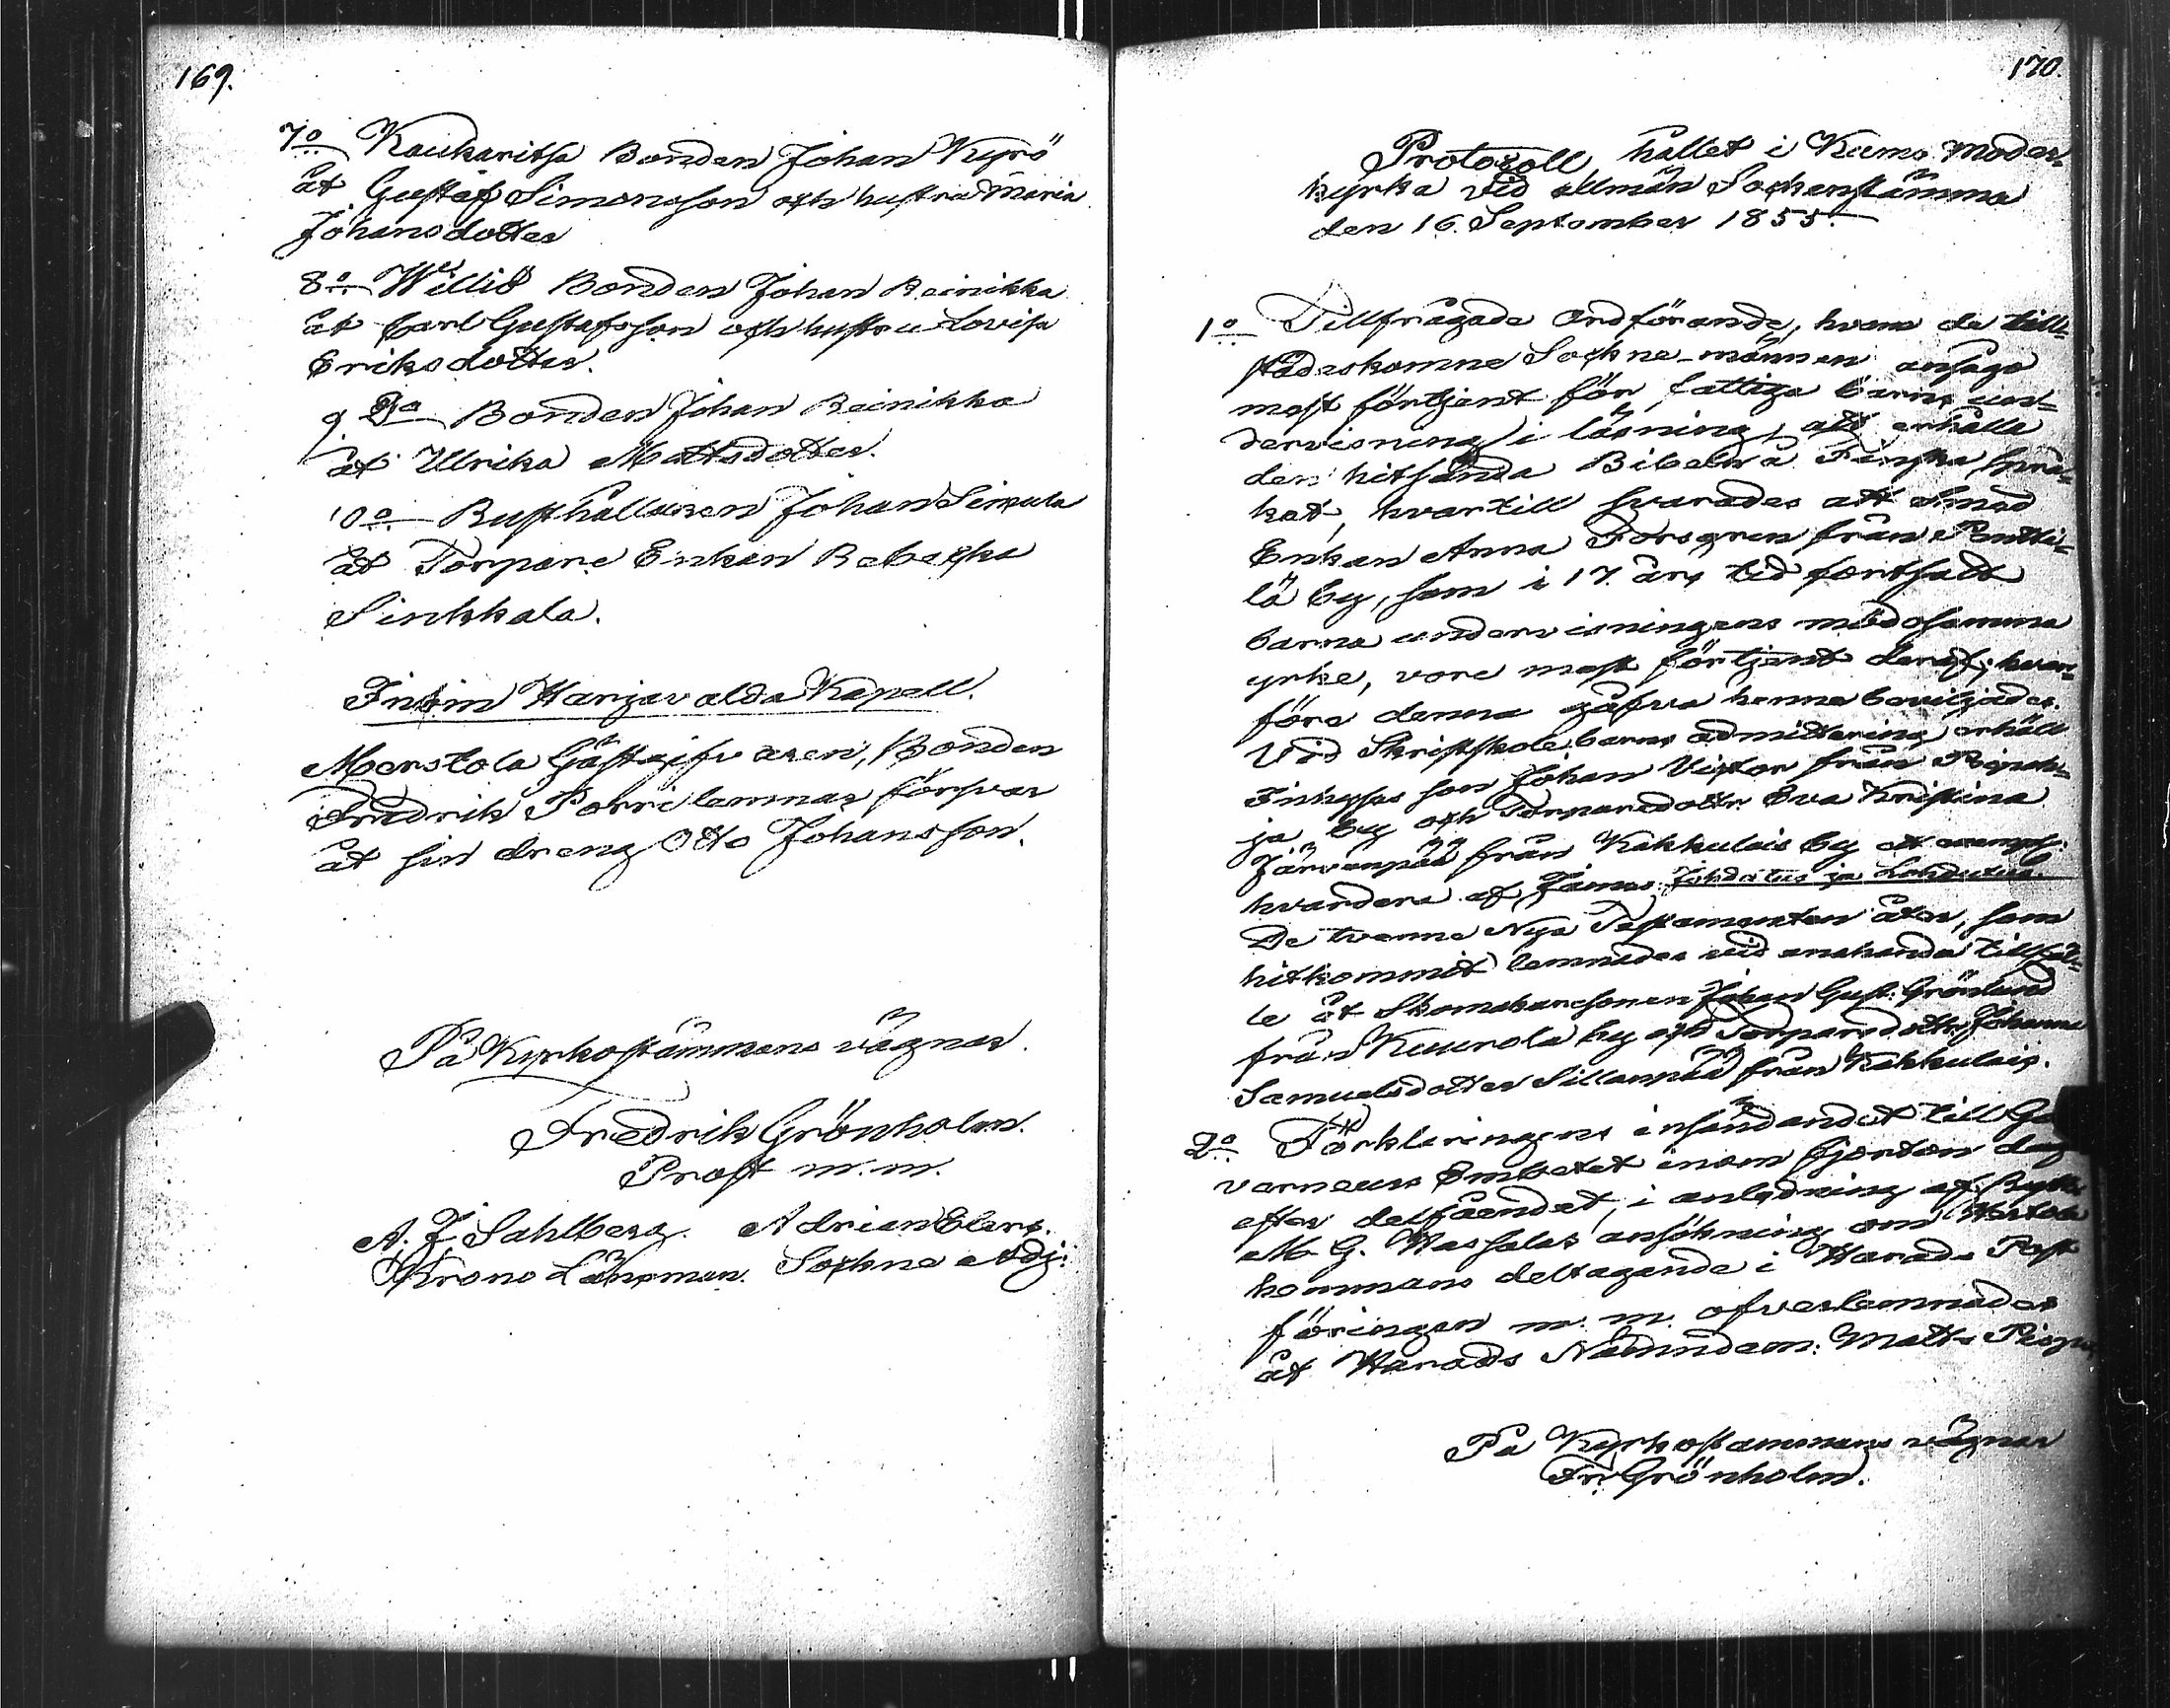 169.
7:o Kaukaritsa Bonden Johan Kyrö
åt Gustaf Simonsson och hustru Maria
Johansdotter
8:o Willio Bonden Johan Reinikka
åt Carl Gustafsson och hustru Lovisa
Eriksdotter.
9. D:o Bonden Johan Reinikka
åt Ulrika Mattsdotter.
10:o Rusthållaren Johan Simula
åt Torpare Enkan Rebecka
Sinkkala.
Inom Harjavalda Kapell.
Merstola Gästgifvaren, Bonden
Fredrik Porri lemnar försvar
åt sin dreng Otto Johansson.
På Kyrkostämmans vägnar.
Fredrik Grönholm.
Prost m.m.
A. F Sahlberg. Adrian Elers.
Krono Länsman. Sockne Adj:
170.
Protocoll hållet i Kumo Moder-
kyrka vid allmän Sockenstämma
den 16. September 1855.
1:o Tillfrågade Ordförande, hvem de till-
städeskomne Sockne-männen ansågo
mest förtjent för fattiga barns un-
dervisning i läsning, att erhålla
den hitsända Bibeln å Finska språ-
ket, hvartill svarades att
Enkan Anna Forsgren från Pentti-
lä by, som i 17. års tid fortsatt
barna undervisningens mödosamma
yrke, vore mest förtjent deraf; hvar-
före denna gåfva henne beviljades.
Vid Skriftskole barns admittering erhöll
son Johan Victor från
ja by och Torparedottr. Eva Kristina
Järvenpää från Kakkulais by ett exempl.
hvardera af Johdatus ja
De tvenne Nya Testamenten åter, som
hitkommit lemnades vid enahanda tillfäl-
le åt Skomakaresonen Johan Gust. Grönlund
från Kuurola by och Torparedottr. Johanna
Samuelsdotter Sillanpää från Kakkulais.
2:o Förklaringens insändandet till Gu
verneurs Embetet inom fjorton dag
efter delfåendet, i anledning af
M. G. Wassalas ansökning om
kommans deltagande i Harads Post
föringen m. m. öfverlemnades
åt Harads Nämndem: Matts
På Kyrkostämmans vägnar
Fr. Grönholm.